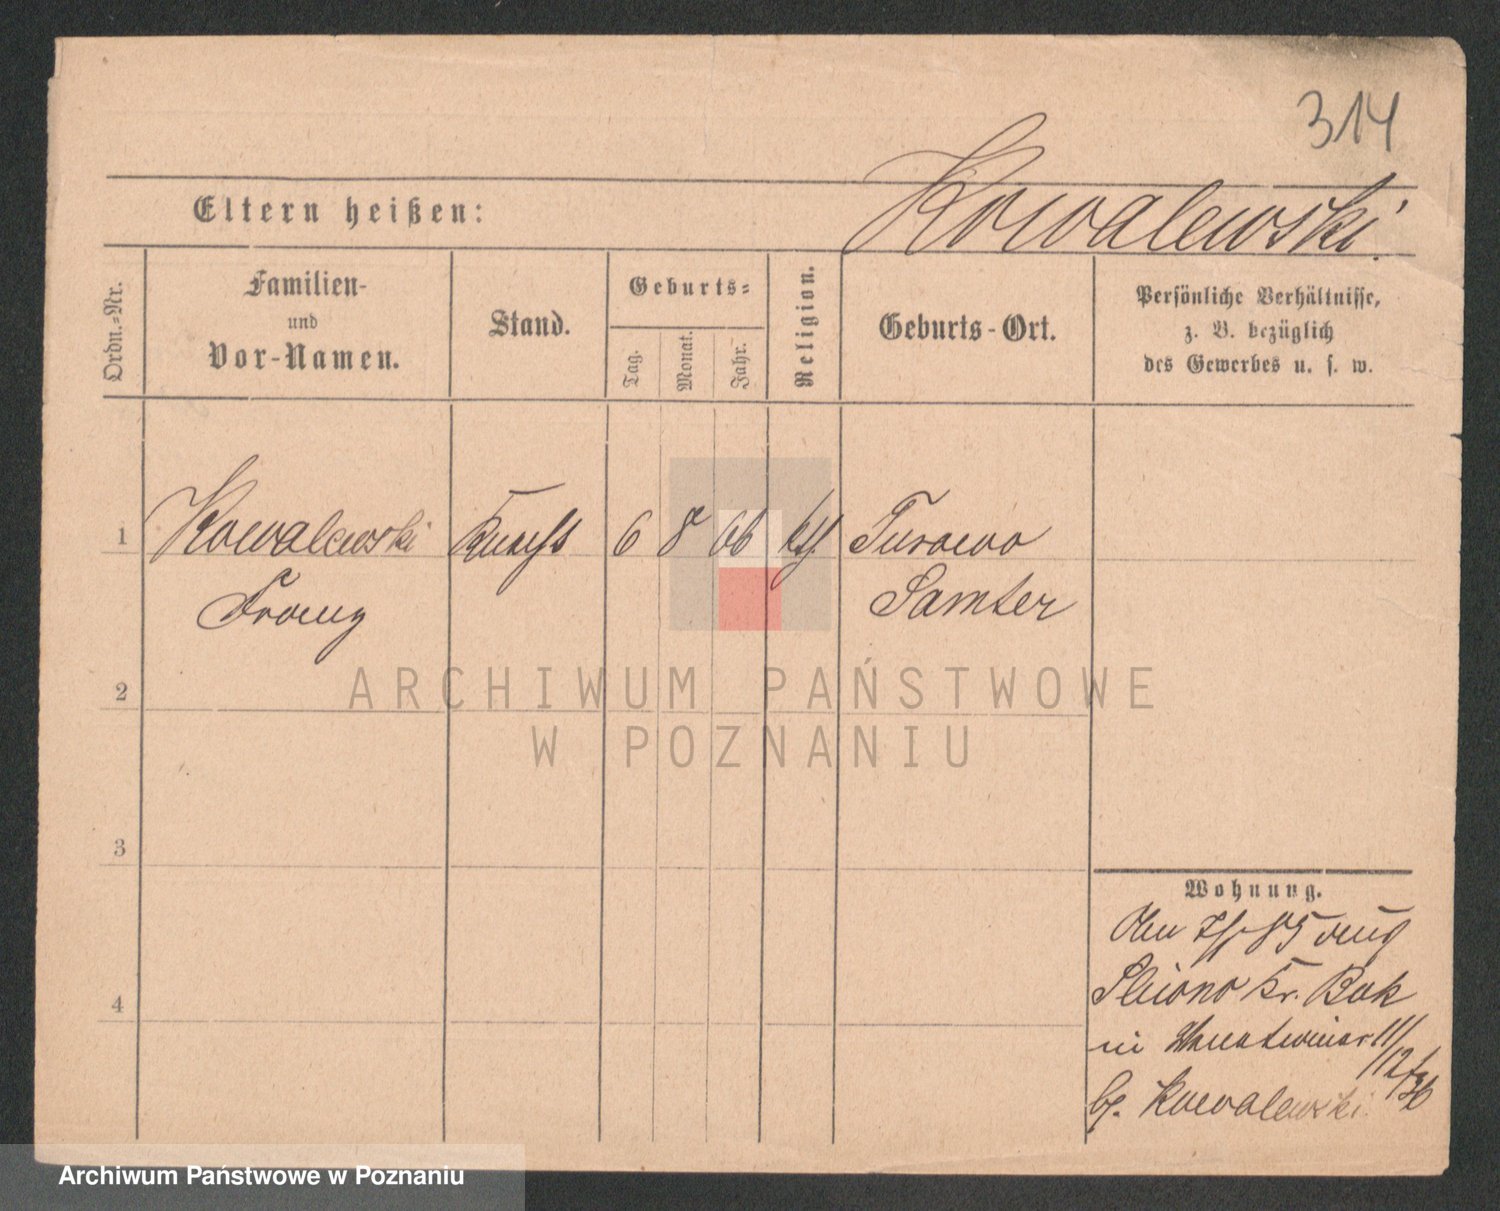 314
Kowalewski.
Eltern heißen:
Ordn.-Nr.
Familien-
und
Vor-Namen.
Stand.
Geburts-
Tag.
Monat.
Jahr.
Religion.
Geburts-Ort.
Persönliche Verhältnisse,
z. B. bezüglich
des Gewerbes u. s. w.
1 Kowalewski Knecht 6 8 66 kth. Turowo
Franz Samter
2
ARCHIWUM PAŃSTWOWE
W POZNANIU
3
4
Wohnung.
85
Kr. Buk
in 11/12
b/. Kowalewski
Archiwum Państwowe w Poznaniu